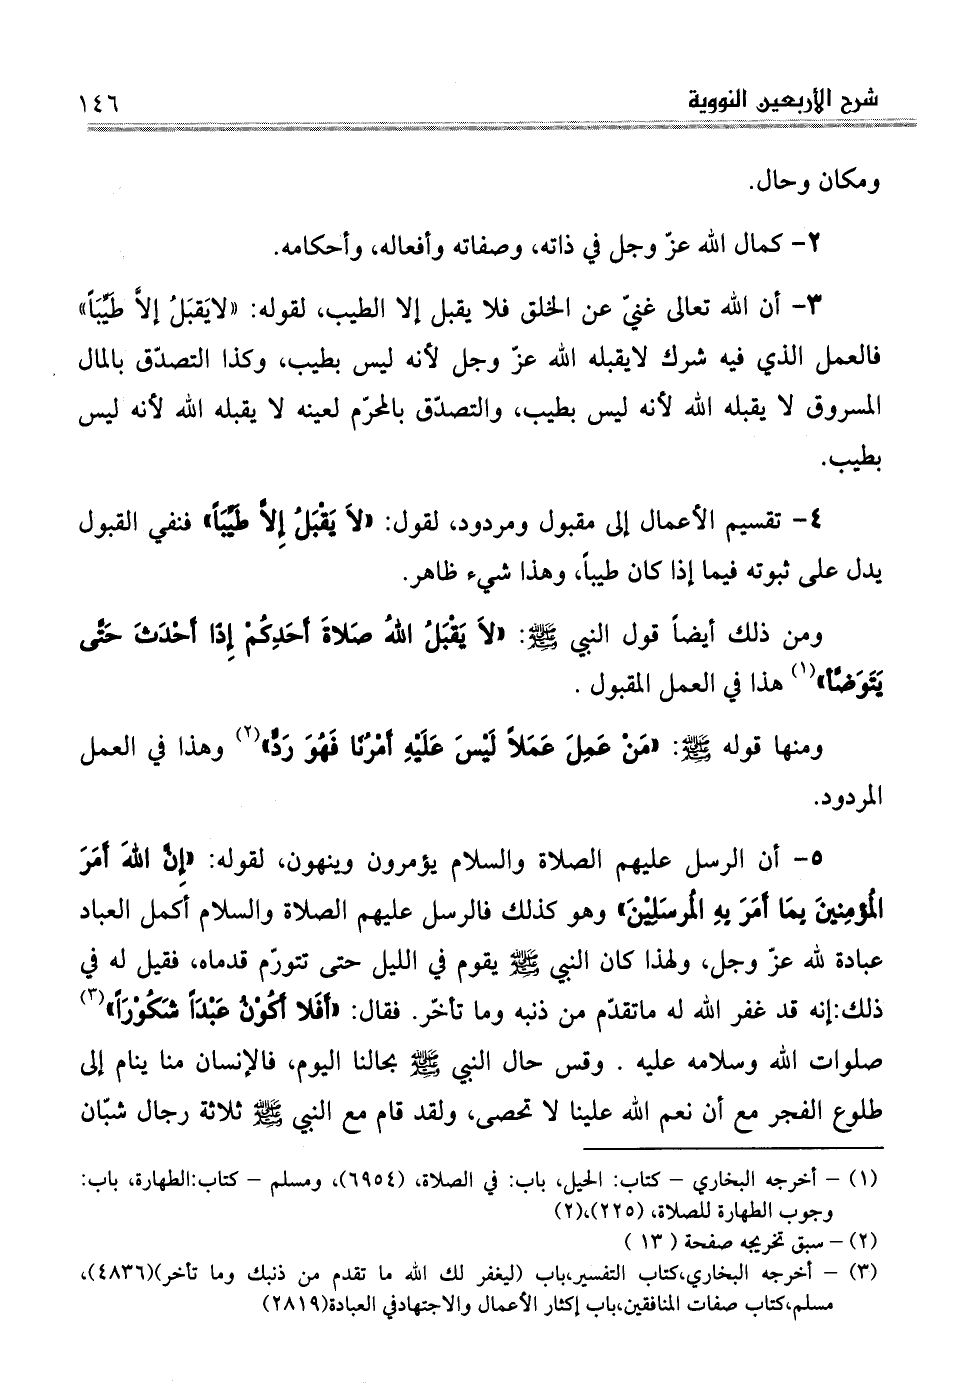 شرح الأربعين النووية ١٤٦
ومكان وحال.
٢- كمال الله عزّ وجل في ذاته، وصفاته وأفعاله، وأحكامه.
٣- أن الله تعالى غنيّ عن الخلق فلا يقبل إلا الطيب، لقوله: «لايَقبَلُ إلاَّ طَيِّبَاً»
فالعمل الذي فيه شرك لايقبله الله عزّ وجل لأنه ليس بطيب، وكذا التصدّق بالمال
المسروق لا يقبله الله لأنه ليس بطيب، والتصدّق بالمحرّم لعينه لا يقبله الله لأنه ليس
بطيب.
٤- تقسيم الأعمال إلى مقبول ومردود، لقول: «لاَ يَقْبَلُ إِلاَّ طَيِّبَاً» فنفي القبول
يدل على ثبوته فيما إذا كان طيباً، وهذا شيء ظاهر.
ومن ذلك أيضاً قول النبي ﷺ: «لاَ يَقْبَلُ اللهُ صَلاةَ أَحَدِكُمْ إِذَا أَحْدَثَ حَتَّى
يَتَوَضَّأ»(١) هذا في العمل المقبول .
ومنها قوله ﷺ: «مَنْ عَمِلَ عَمَلاً لَيْسَ عَلَيْهِ أَمْرُنَا فَهُوَ رَدٌّ»(٢) وهذا في العمل
المردود.
٥- أن الرسل عليهم الصلاة والسلام يؤمرون وينهون، لقوله: «إِنَّ اللهَ أَمَرَ
المُؤمِنينَ بِمَا أَمَرَ بِهِ المُرسَلِيْنَ» وهو كذلك فالرسل عليهم الصلاة والسلام أكمل العباد
عبادة لله عزّ وجل، ولهذا كان النبي ﷺ يقوم في الليل حتى تتورّم قدماه، فقيل له في
ذلك:إنه قد غفر الله له ماتقدّم من ذنبه وما تأخّر. فقال: «أَفَلا أَكُوْنُ عَبْدَاً شَكُوْرَاً»(٣)
صلوات الله وسلامه عليه . وقس حال النبي ﷺ بحالنا اليوم، فالإنسان منا ينام إلى
طلوع الفجر مع أن نعم الله علينا لا تحصى، ولقد قام مع النبي ﷺ ثلاثة رجال شبّان
(١) – أخرجه البخاري – كتاب: الحيل، باب: في الصلاة، (٦٩٥٤)، ومسلم – كتاب:الطهارة، باب:
وجوب الطهارة للصلاة، (٢٢٥)،(٢)
(٢) – سبق تخريجه صفحة ( ١٣ )
(٣) – أخرجه البخاري،كتاب التفسير،باب (ليغفر لك الله ما تقدم من ذنبك وما تأخر)(٤٨٣٦)،
مسلم،كتاب صفات المنافقين،باب إكثار الأعمال والاجتهادفي العبادة(٢٨١٩)